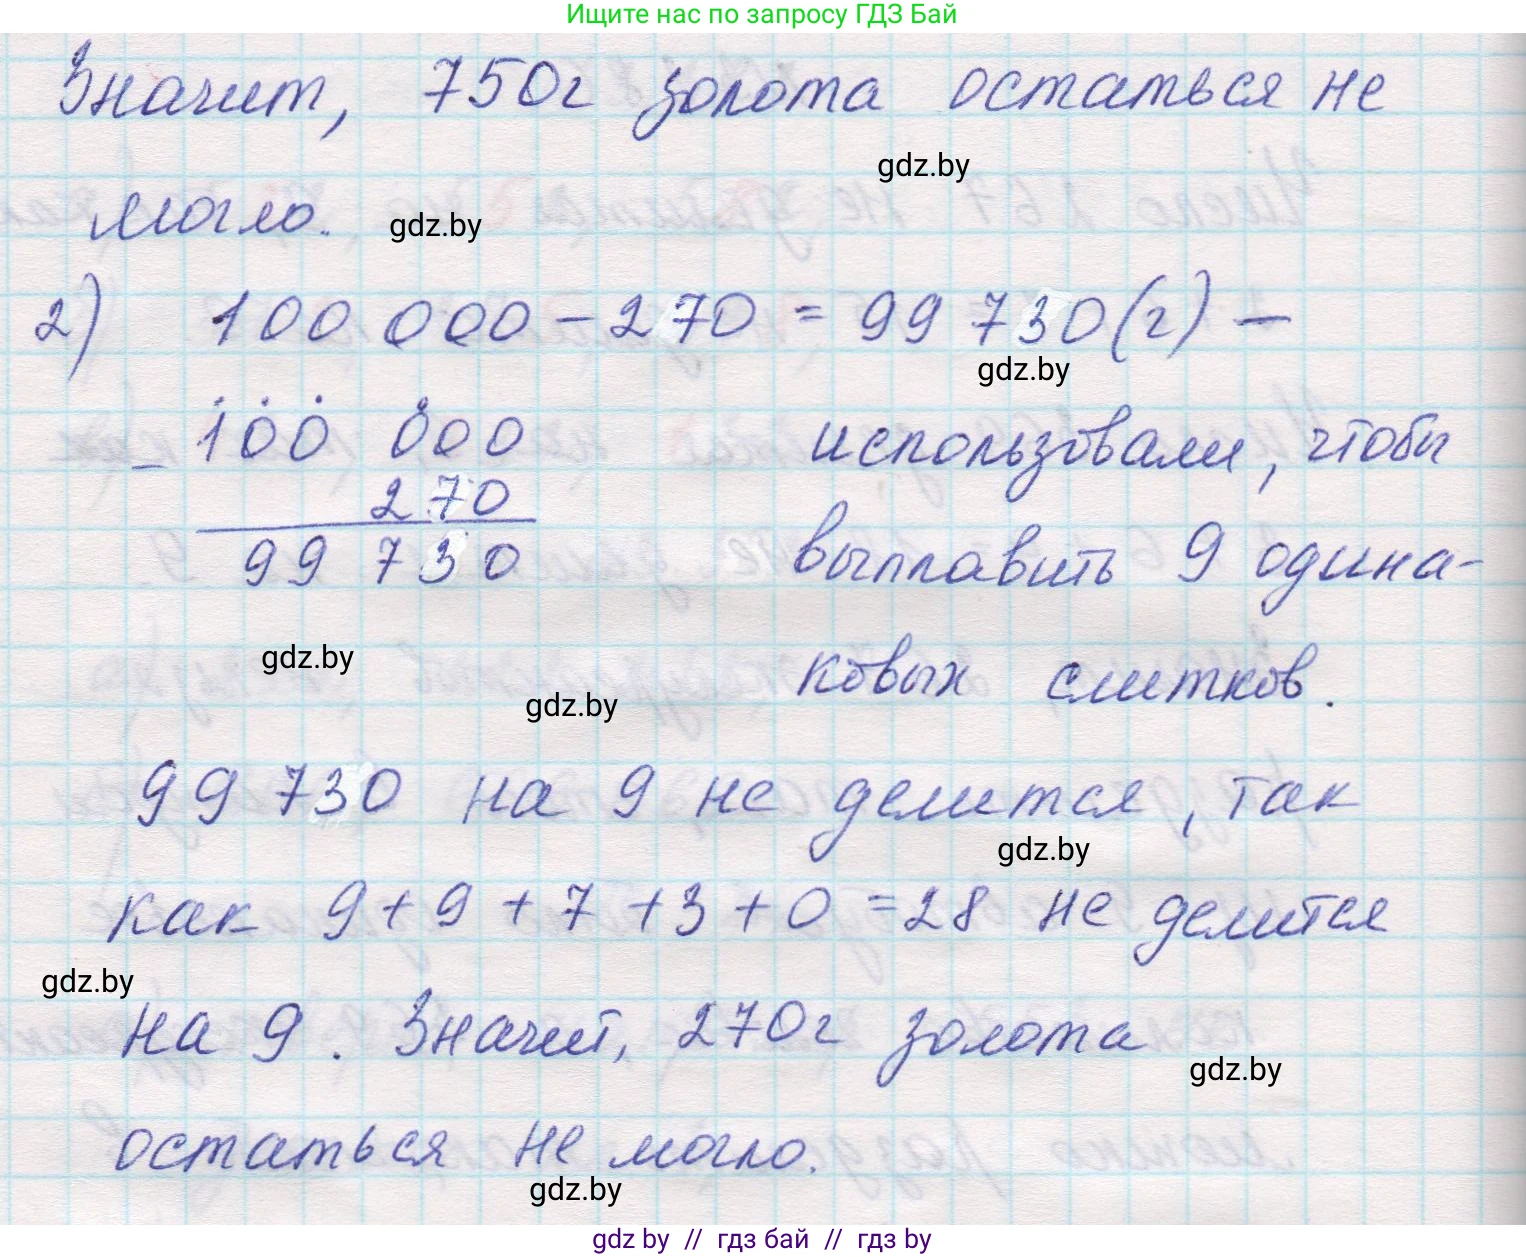 Ищите нас по запросу ГДЗ Бай
Значит, 750г золота остаться не
gdz.by
могло.
gdz.by
2) 100 000 - 270 = 99 730 (г) –
gdz.by
100 000
использовали, чтобы
- 270
99 730
выплавить 9 одина-
gdz.by
ковых слитков.
gdz.by
99 730 на 9 не делится, так
gdz.by
как 9 + 9 + 7 + 3 + 0 = 28 не делится
gdz.by
на 9. Значит, 270г золота
gdz.by
остаться не могло.
gdz.by
gdz by // гдз бай // гдз by